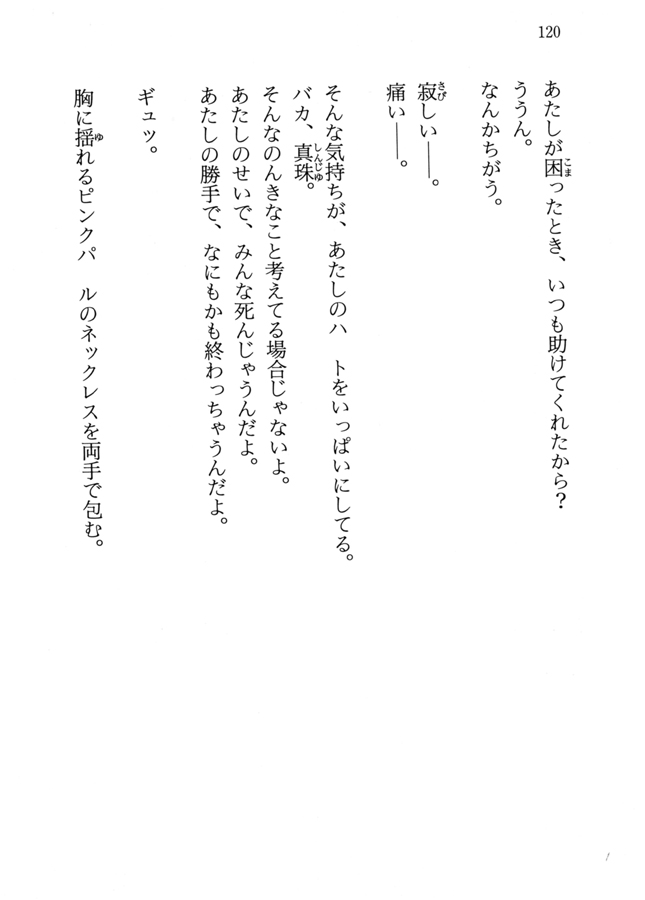 120
あたしが困ったとき、いつも助けてくれたから？
ううん。
なんかちがう。
寂しい――。
痛い――。
そんな気持ちが、あたしのハ　トをいっぱいにしてる。
バカ、真珠。
そんなのんきなこと考えてる場合じゃないよ。
あたしのせいで、みんな死んじゃうんだよ。
あたしの勝手で、なにもかも終わっちゃうんだよ。
ギュッ。
胸に揺れるピンクパ　ルのネックレスを両手で包む。